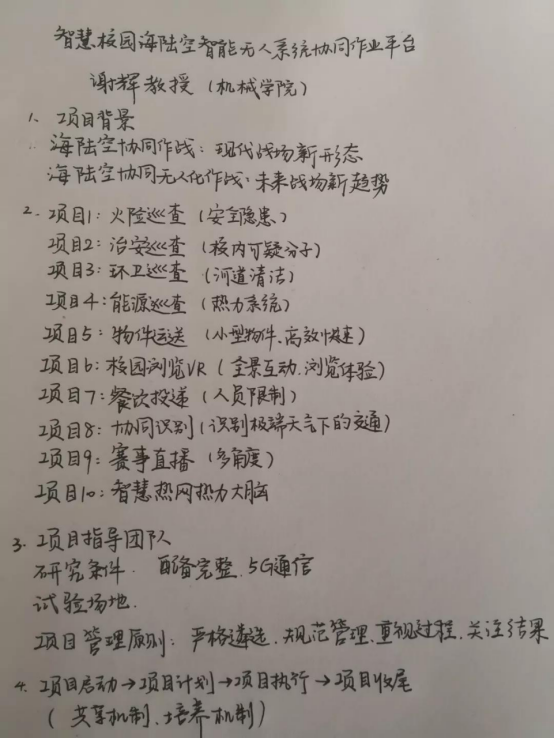 智慧校园海陆空智能无人系统协同作业平台
谢辉教授（机械学院）
1、项目背景
海陆空协同作战：现代战场新形态
海陆空协同无人化作战：未来战场新趋势
2、项目1：火险巡查（安全隐患）
项目2：治安巡查（校内可疑分子）
项目3：环卫巡查（河道清洁）
项目4：能源巡查（热力系统）
项目5：物件运送（小型物件、高效快速）
项目6：校园浏览VR（全景互动、浏览体验）
项目7：餐饮投递（人员限制）
项目8：协同识别（识别极端天气下的交通）
项目9：赛事直播（多角度）
项目10：智慧热网热力大脑
3、项目指导团队
研究条件．配备完整、5G通信
试验场地．
项目管理原则：严格遴选、规范管理、重视过程、关注结果
4、项目启动→项目计划→项目执行→项目收尾
（共享机制、培养机制）